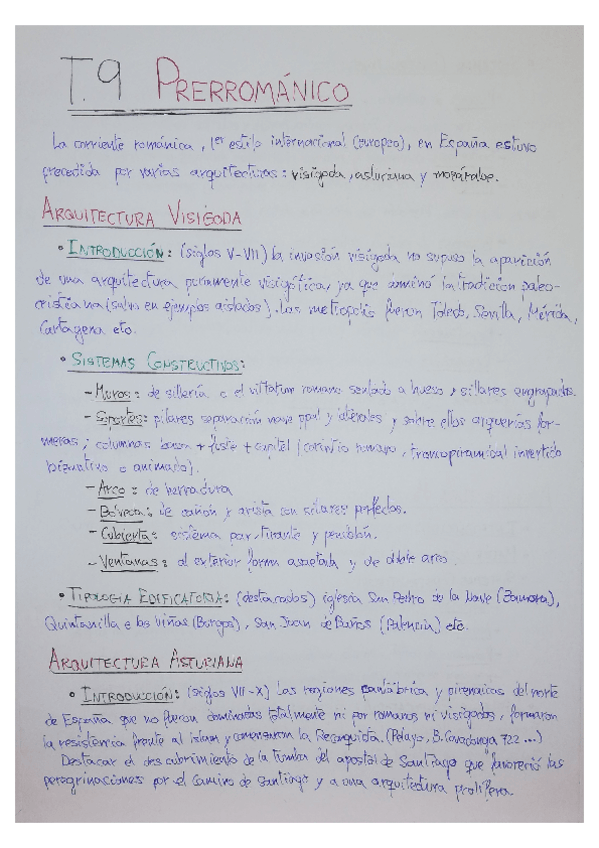 T.9 PRERROMÁNICO
La corriente románica, 1er estilo internacional (europeo), en España estuvo
precedida por varias arquitecturas: visigoda, asturiana y mozárabe.
ARQUITECTURA VISIGODA
• INTRODUCCIÓN: (siglos V-VII) la invasión visigoda no supuso la aparición
de una arquitectura puramente visigótica, ya que dominó la tradición paleo-
cristiana (salvo en ejemplos aislados). Las metrópolis fueron Toledo, Sevilla, Mérida,
Cartagena etc.
• SISTEMAS CONSTRUCTIVOS:
- Muros: de sillería o el vittatum romano sentado a hueso y sillares engrapados.
- Soportes: pilares separación nave ppal y laterales y sobre ellos arquerías for-
meras; columnas basa + fuste + capitel (corintio romano, troncopiramidal invertido
bizantino o animado).
- Arco: de herradura
- Bóveda: de cañón y arista con sillares perfectos.
- Cubierta: sistema par, tirante y pendolón.
- Ventanas: al exterior forma asaetada y de doble arco.
• TIPOLOGIA EDIFICATORIA: (destacados) iglesia San Pedro de la Nave (Zamora),
Quintanilla e las viñas (Burgos), San Juan de Baños (Palencia) etc.
ARQUITECTURA ASTURIANA
• INTRODUCCIÓN: (siglos VII-X) Las regiones cantábrica y pirenaicas del norte
de España que no fueron dominadas totalmente ni por romanos ni visigodos, formaron
la resistencia frente al islam y comenzaron la Reconquista. (Pelayo, B. Covadonga 722...)
Destacar el descubrimiento de la tumba del apóstol de Santiago que favoreció las
peregrinaciones por el Camino de Santiago y a una arquitectura prolífera.